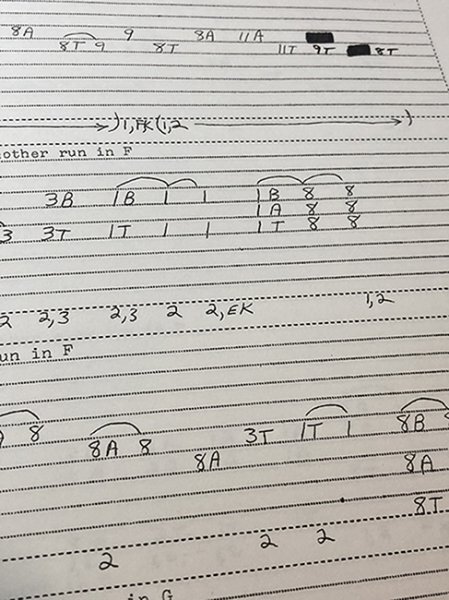 8A 9 8A 11A
8T 9 8T 11T 9T 8T
)1, EK (1,2 )
other run in F
3B 1B 1 1 1B 8 8
1A 8 8
3 3T 1T 1 1 1T 8 8
2 2,3 2,3 2 2,EK 1,2
un in F
8 8A 8 3T 1T 1 8B 8
8A 8A
8T
2 2 2
in G